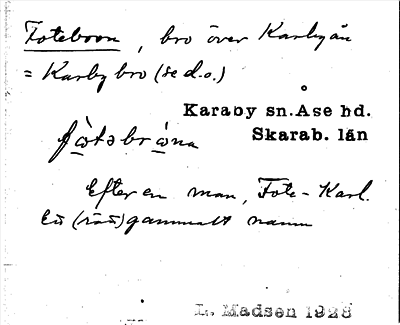 Foteboon, bro över Karbyån
= Karby bro (se d.o.)
Karaby sn. Åse hd.
Skarab. län
Efter en man, Fote-Karl.
Ett (rätt) gammalt namn
L. Madsen 1928